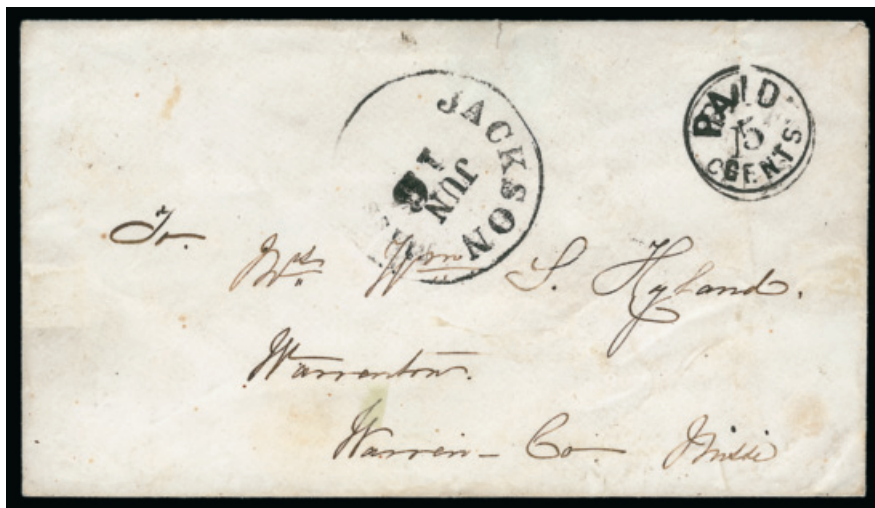 JACKSON
JUN
PAID
5
CENTS
To
Mrs Wm S. Hyland.
Warrenton.
Warren - Co Missi